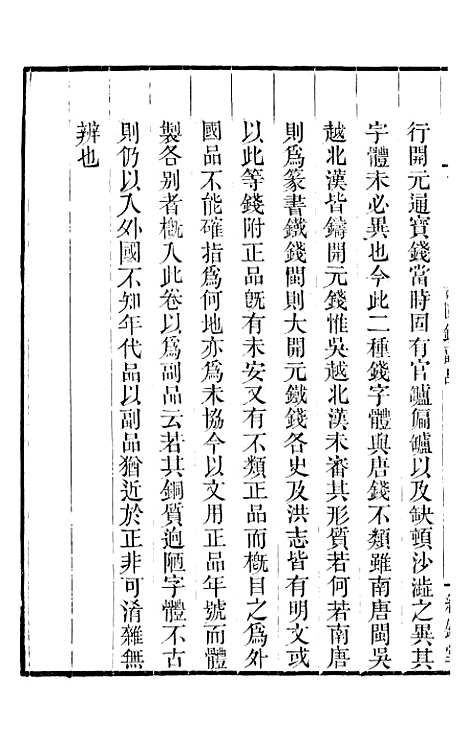 行開元通寶錢當時固有官鑪偏鑪以及缺頓沙澁之異其
字體未必異也今此二種錢字體與唐錢不類雖南唐閩吳
越北漢皆鑄開元錢惟吳越北漢未審其形質若何若南唐
則爲篆書鐵錢閩則大開元鐵錢各史及洪志皆有明文或
以此等錢附正品旣有未安又有不類正品而槪目之爲外
國品不能確指爲何地亦爲未協今以文用正品年號而體
製各別者槪入此卷以爲副品云若其銅質逈陋字體不古
則仍以入外國不知年代品以副品猶近於正非可淆雜無
辨也